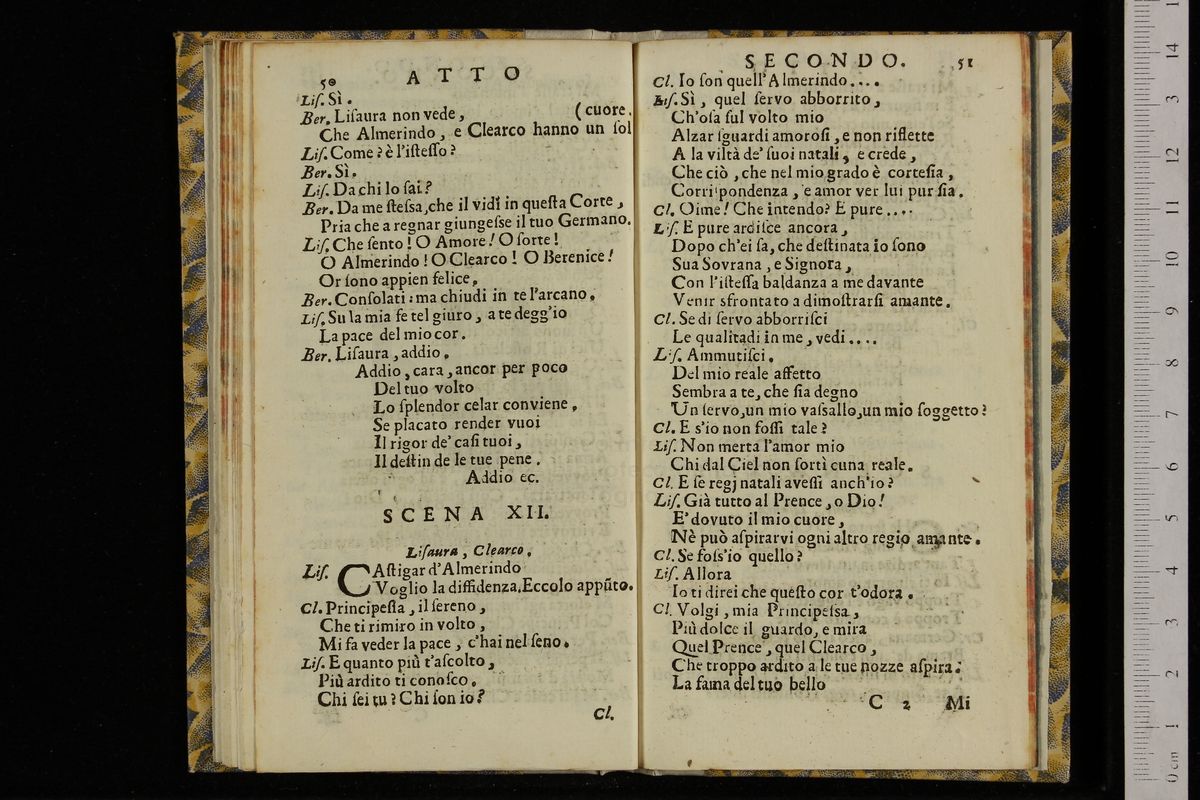 50 ATTO
Liſ. Sì.
Ber. Liſaura non vede, (cuore.
Che Almerindo, e Clearco hanno un ſol
Liſ. Come? è l'iſteſſo?
Ber. Sì.
Liſ. Da chi lo ſai?
Ber. Da me ſteſsa, che il vidi in queſta Corte,
Pria che a regnar giungeſse il tuo Germano.
Liſ. Che ſento! O Amore! O ſorte!
O Almerindo! O Clearco! O Berenice!
Or ſono appien felice.
Ber. Conſolati: ma chiudi in te l'arcano.
Liſ. Su la mia fe tel giuro, a te degg'io
La pace del mio cor.
Ber. Liſaura, addio.
Addio, cara, ancor per poco
Del tuo volto
Lo ſplendor celar conviene,
Se placato render vuoi
Il rigor de' caſi tuoi,
Il deſtin de le tue pene.
Addio ec.
SCENA XII.
Liſaura, Clearco.
Liſ. CAſtigar d'Almerindo
Voglio la diffidenza. Eccolo appũto.
Cl. Principeſſa, il ſereno,
Che ti rimiro in volto,
Mi fa veder la pace, c'hai nel ſeno.
Liſ. E quanto più t'aſcolto,
Più ardito ti conoſco.
Chi ſei tu? Chi ſon io?
Cl.
SECONDO. 51
Cl. Io ſon quell'Almerindo....
Liſ. Sì, quel ſervo abborrito,
Ch'oſa ſul volto mio
Alzar ſguardi amoroſi, e non riflette
A la viltà de' ſuoi natali, e crede,
Che ciò, che nel mio grado è corteſia,
Corriſpondenza, e amor ver lui pur ſia.
Cl. Oime! Che intendo? E pure....
Liſ. E pure ardiſce ancora,
Dopo ch'ei ſa, che deſtinata io ſono
Sua Sovrana, e Signora,
Con l'iſteſſa baldanza a me davante
Venir sfrontato a dimoſtrarſi amante.
Cl. Se di ſervo abborriſci
Le qualitadi in me, vedi....
Liſ. Ammutiſci.
Del mio reale affetto
Sembra a te, che ſia degno
Un ſervo, un mio vaſsallo, un mio ſoggetto?
Cl. E s'io non foſſi tale?
Liſ. Non merta l'amor mio
Chi dal Ciel non ſortì cuna reale.
Cl. E ſe regj natali aveſſi anch'io?
Liſ. Già tutto al Prence, o Dio!
E' dovuto il mio cuore,
Nè può aſpirarvi ogni altro regio amante.
Cl. Se foſs'io quello?
Liſ. Allora
Io ti direi che queſto cor t'odora.
Cl. Volgi, mia Principeſsa,
Più dolce il guardo, e mira
Quel Prence, quel Clearco,
Che troppo ardito a le tue nozze aſpira.
La fama del tuo bello
C 2 Mi